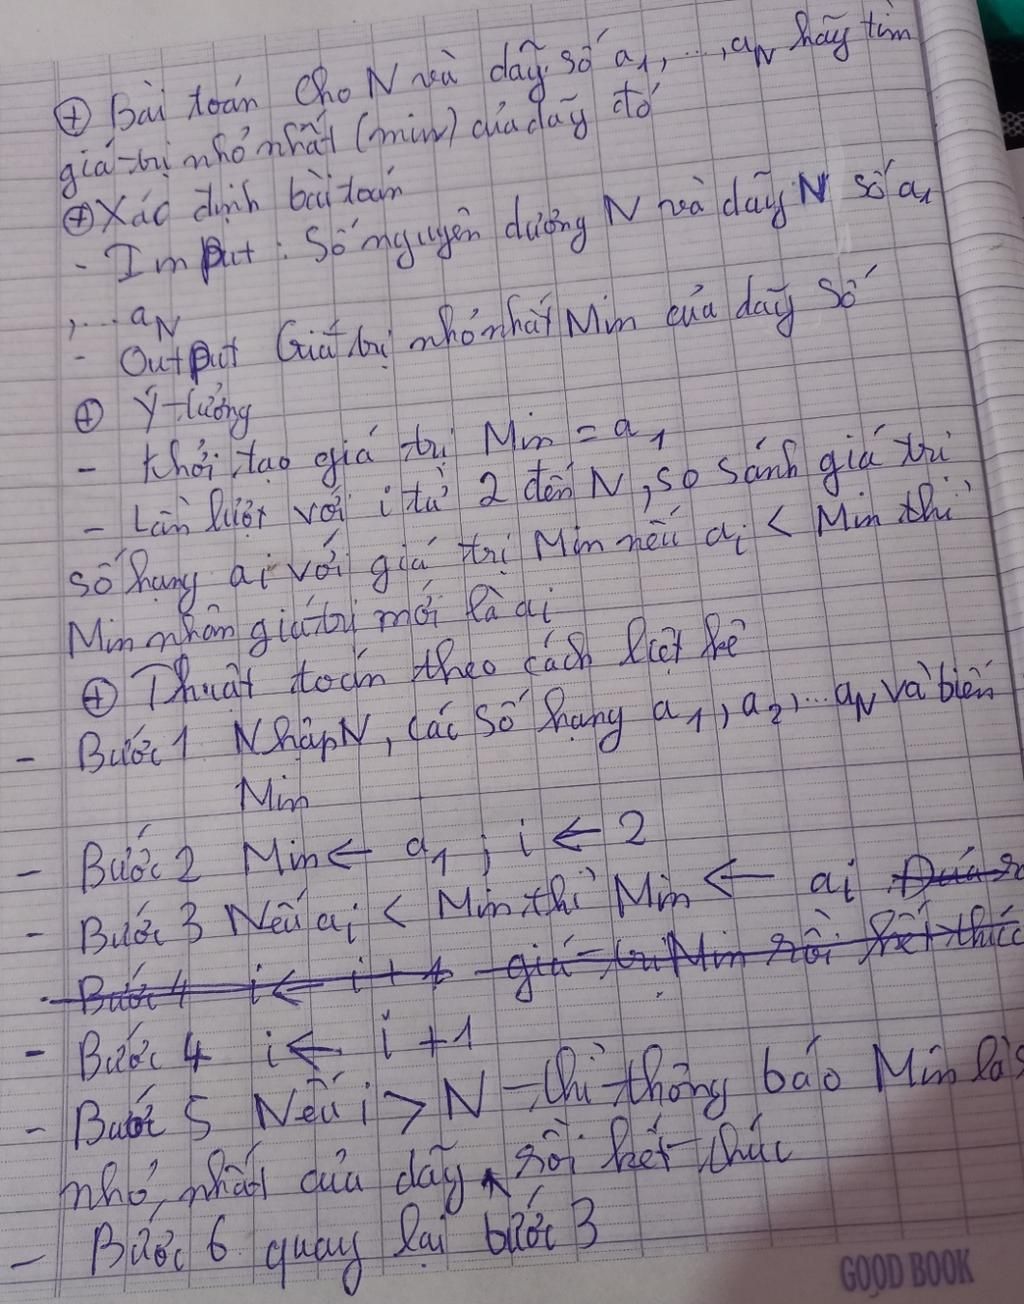 ⊕ Bài toán Cho N và dãy số a₁, ..., aN hãy tìm
giá trị nhỏ nhất (min) của dãy đó
⊕ Xác định bài toán
- Imput : Số nguyên dương N và dãy N số a₁
,... aN
- Output Giá trị nhỏ nhất Min của dãy số
⊕ Ý tưởng
- Khởi tạo giá trị Min = a₁
- Lần lượt với i từ 2 đến N, so sánh giá trị
số hạng ai với giá trị Min nếu ai < Min thì
Min nhận giá trị mới là ai
⊕ Thuật toán theo cách liệt kê
- Bước 1 Nhập N, các số hạng a₁, a₂,... aN và biến
Min
- Bước 2 Min ← a₁ ; i ← 2
- Bước 3 Nếu ai < Min thì Min ← ai Đưa ra
- Bước 4 i ← i + 1 giá trị Min rồi kết thúc
- Bước 4 i ← i + 1
- Bước 5 Nếu i > N thì thông báo Min là s
nhỏ nhất của dãy, rồi kết thúc
- Bước 6 quay lại bước 3
GOOD BOOK